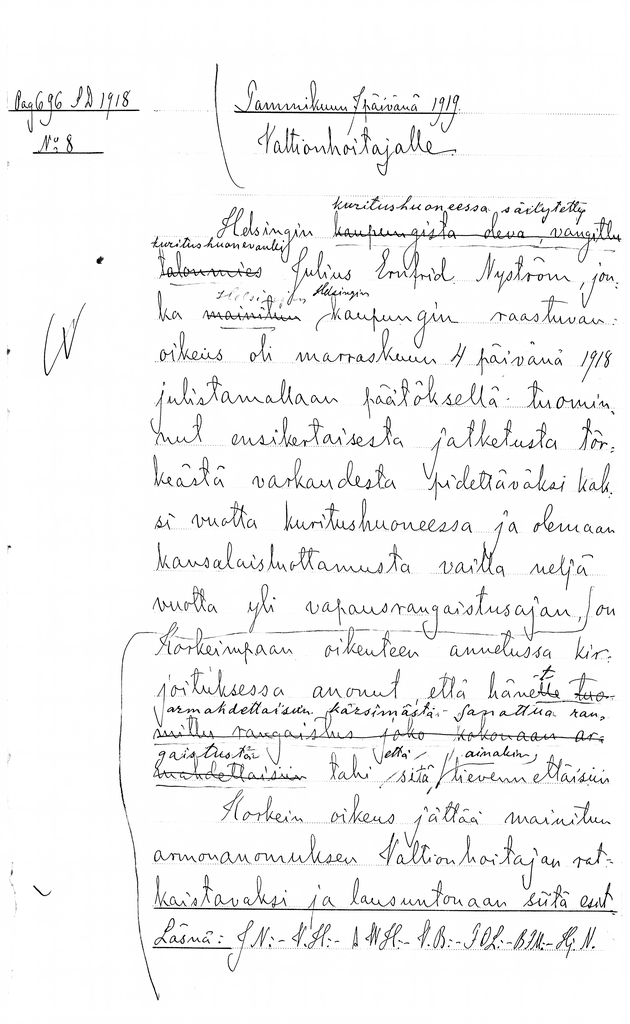 Pag 696 S D 1918
No 8
Tammikuun 7 päivänä 1919.
Valtionhoitajalle.
kuritushuoneessa säilytetty
Helsingin kaupungista oleva, vangittu
kuritushuonevanki
talonmies Julius Ernfrid Nyström, jon-
Helsingin Helsingin
ka mainitun kaupungin raastuvan-
oikeus oli marraskuun 4 päivänä 1918
julistamallaan päätöksellä tuomin-
nut ensikertaisesta jatketusta tör-
keästä varkaudesta pidettäväksi kak-
si vuotta kuritushuoneessa ja olemaan
kansalaisluottamusta vailla neljä
vuotta yli vapausrangaistusajan, on
Korkeimpaan oikeuteen annetussa kir-
joituksessa anonut, että hänet tuo-
armahdettaisiin kärsimästä sanottua ran-
mittu rangaistus joko kokonaan ar-
gaistusta että ainakin
mahdettaisiin tahi sitä lievennettäisiin
Korkein oikeus jättää mainitun
armonanomuksen Valtionhoitajan rat-
kaistavaksi ja lausuntonaan siitä esitt.
Läsnä: J N:- V. H:- A W H:- V. B:- F O L:- B I M:- Hj. N.